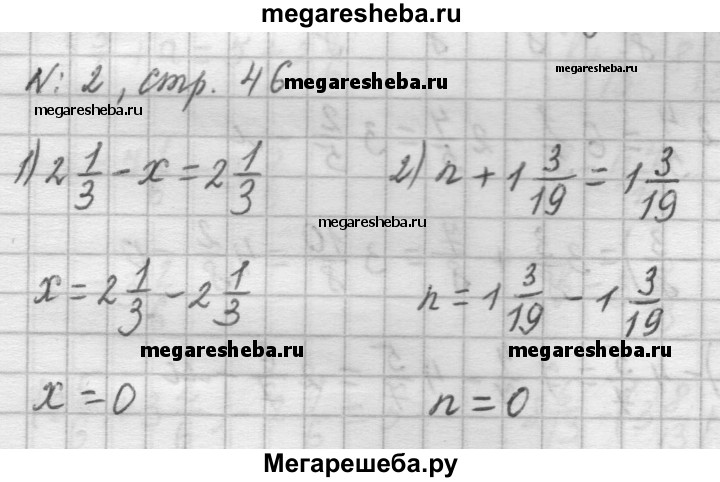 megaresheba.ru
№: 2, стр. 46 megaresheba.ru megaresheba.ru
megaresheba.ru
1) 2 1/3 - x = 2 1/3 2) n + 1 3/19 = 1 3/19
megaresheba.ru
x = 2 1/3 - 2 1/3 n = 1 3/19 - 1 3/19
megaresheba.ru megaresheba.ru
x = 0 n = 0
Мегарешеба.ру